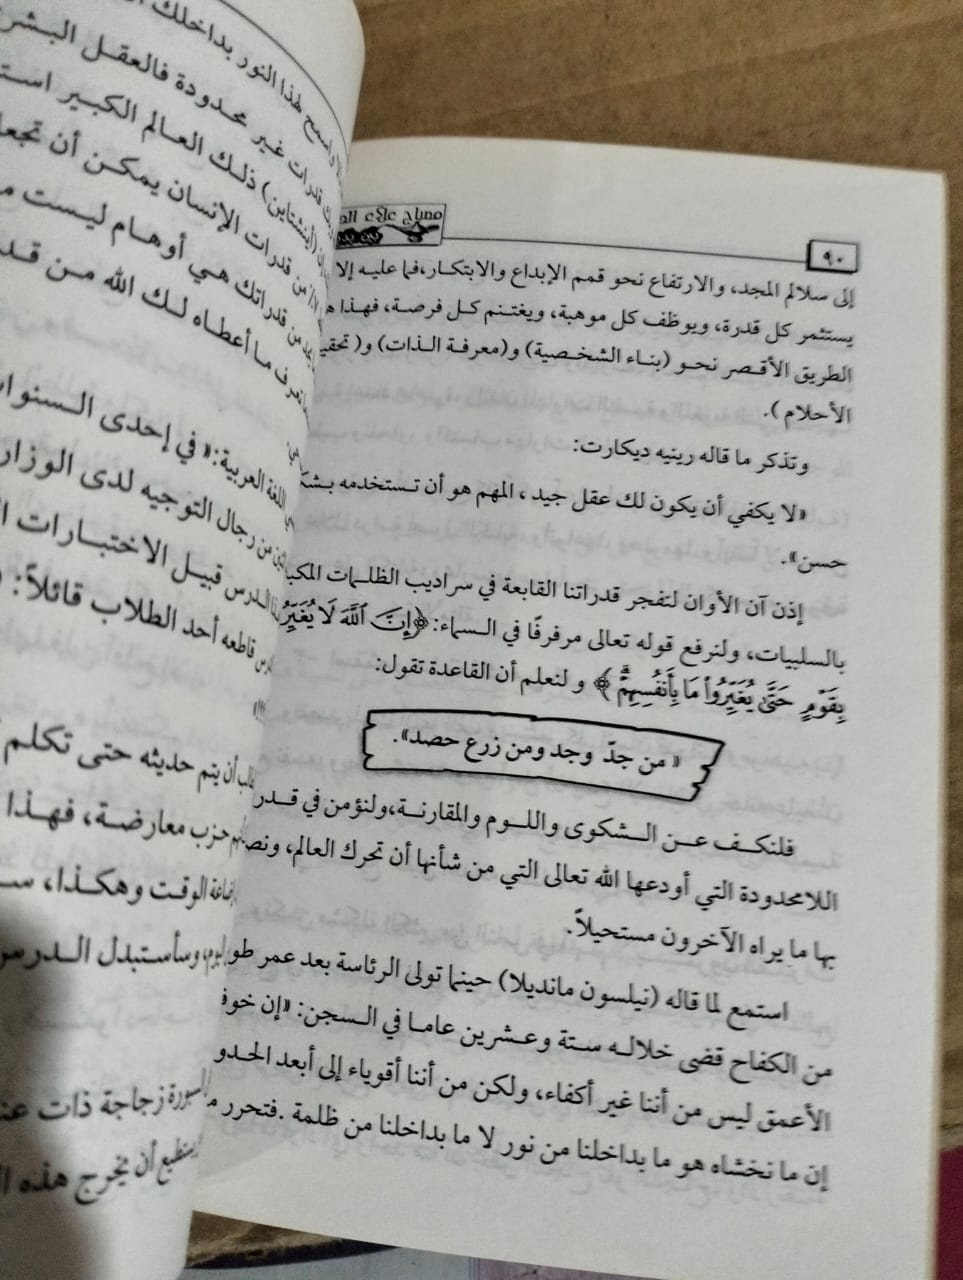 ٩٠
مصباح علاء
إلى سلالم المجد، والارتفاع نحو قمم الإبداع والابتكار،فما عليه إلا
يستثمر كل قدرة، ويوظف كل موهبة، ويغتنم كل فرصة، فهذا
الطريق الأقصر نحو (بناء الشخصية) و(معرفة الذات) و(
الأحلام ).
وتذكر ما قاله رينيه ديكارت:
«لا يكفي أن يكون لك عقل جيد ، المهم هو أن تستخدمه
حسن».
إذن آن الأوان لنفجر قدراتنا القابعة في سراديب الظلمات
بالسلبيات، ولنرفع قوله تعالى مرفرفًا في السماء: ﴿إِنَّ ٱللَّهَ لَا يُغَيِّرُ
بِقَوْمٍ حَتَّىٰ يُغَيِّرُواْ مَا بِأَنفُسِهِمْ ۗ﴾ و لنعلم أن القاعدة تقول:
« من جدّ وجد ومن زرع حصد».
فلنكف عن الشكوى واللوم والمقارنة،ولنؤمن في
اللامحدودة التي أودعها الله تعالى التي من شأنها أن تحرك العالم،
بها ما يراه الآخرون مستحيلاً.
استمع لما قاله (نيلسون مانديلا) حينما تولى الرئاسة بعد عمر
من الكفاح قضى خلاله ستة وعشرين عاما في السجن: «إن
الأعمق ليس من أننا غير أكفاء، ولكن من أننا أقوياء إلى أبعد
إن ما نخشاه هو ما بداخلنا من نور لا ما بداخلنا من ظلمة .فتحرر
واسمح لهذا النور بداخلك
قدرات غير محدودة فالعقل
(أينشتاين) ذلك العالم الكبير
من قدرات الإنسان يمكن أن
من قدراتك هي أوهام ليست
ما أعطاه لك الله من
اللغة العربية:« في إحدى
من رجال التوجيه لدى
الدرس قبيل الاختبارات
قاطعه أحد الطلاب قائلاً:
!!!»
أن يتم حديثه حتى تكلم
حزب معارضة، فهذا
الوقت وهكذا،
وسأستبدل
زجاجة ذات
أن يخرج هذه